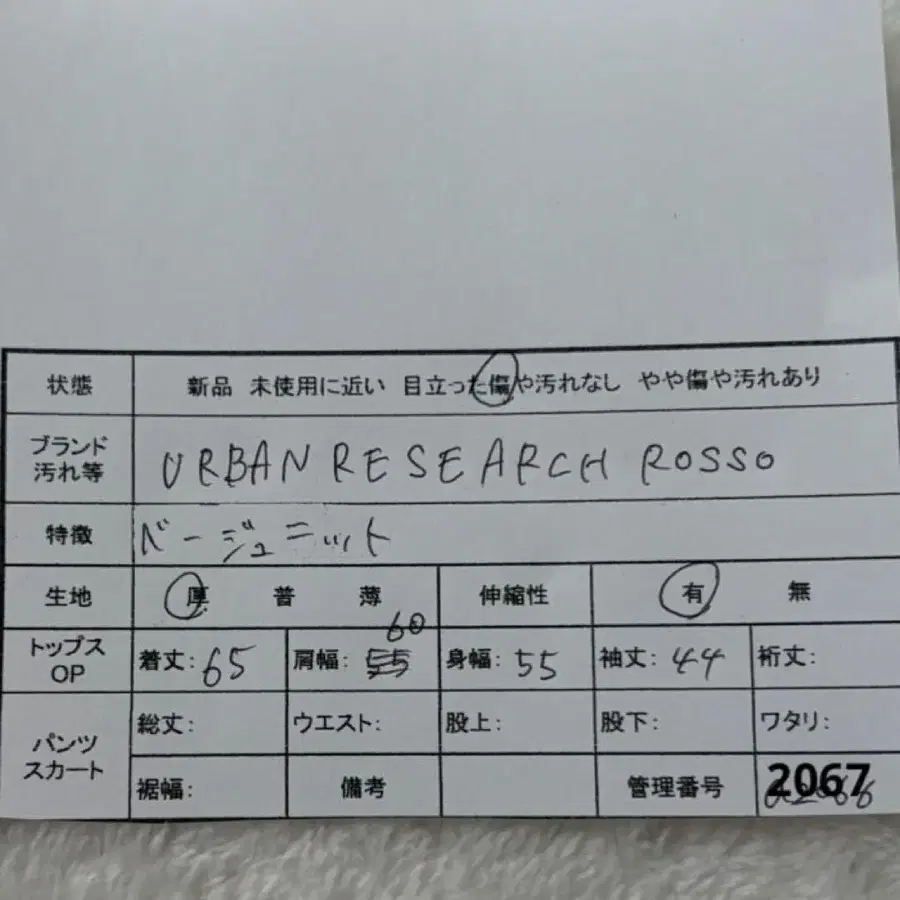 状態 新品 未使用に近い 目立った傷や汚れなし やや傷や汚れあり
ブランド
汚れ等 URBAN RESEARCH ROSSO
特徴 ベージュニット
生地 厚 普 薄 伸縮性 有 無
60
トップス
OP 着丈: 65 肩幅: 55 身幅: 55 袖丈: 44 裄丈:
パンツ
スカート 総丈: ウエスト: 股上: 股下: ワタリ:
裾幅: 備考 管理番号 2067